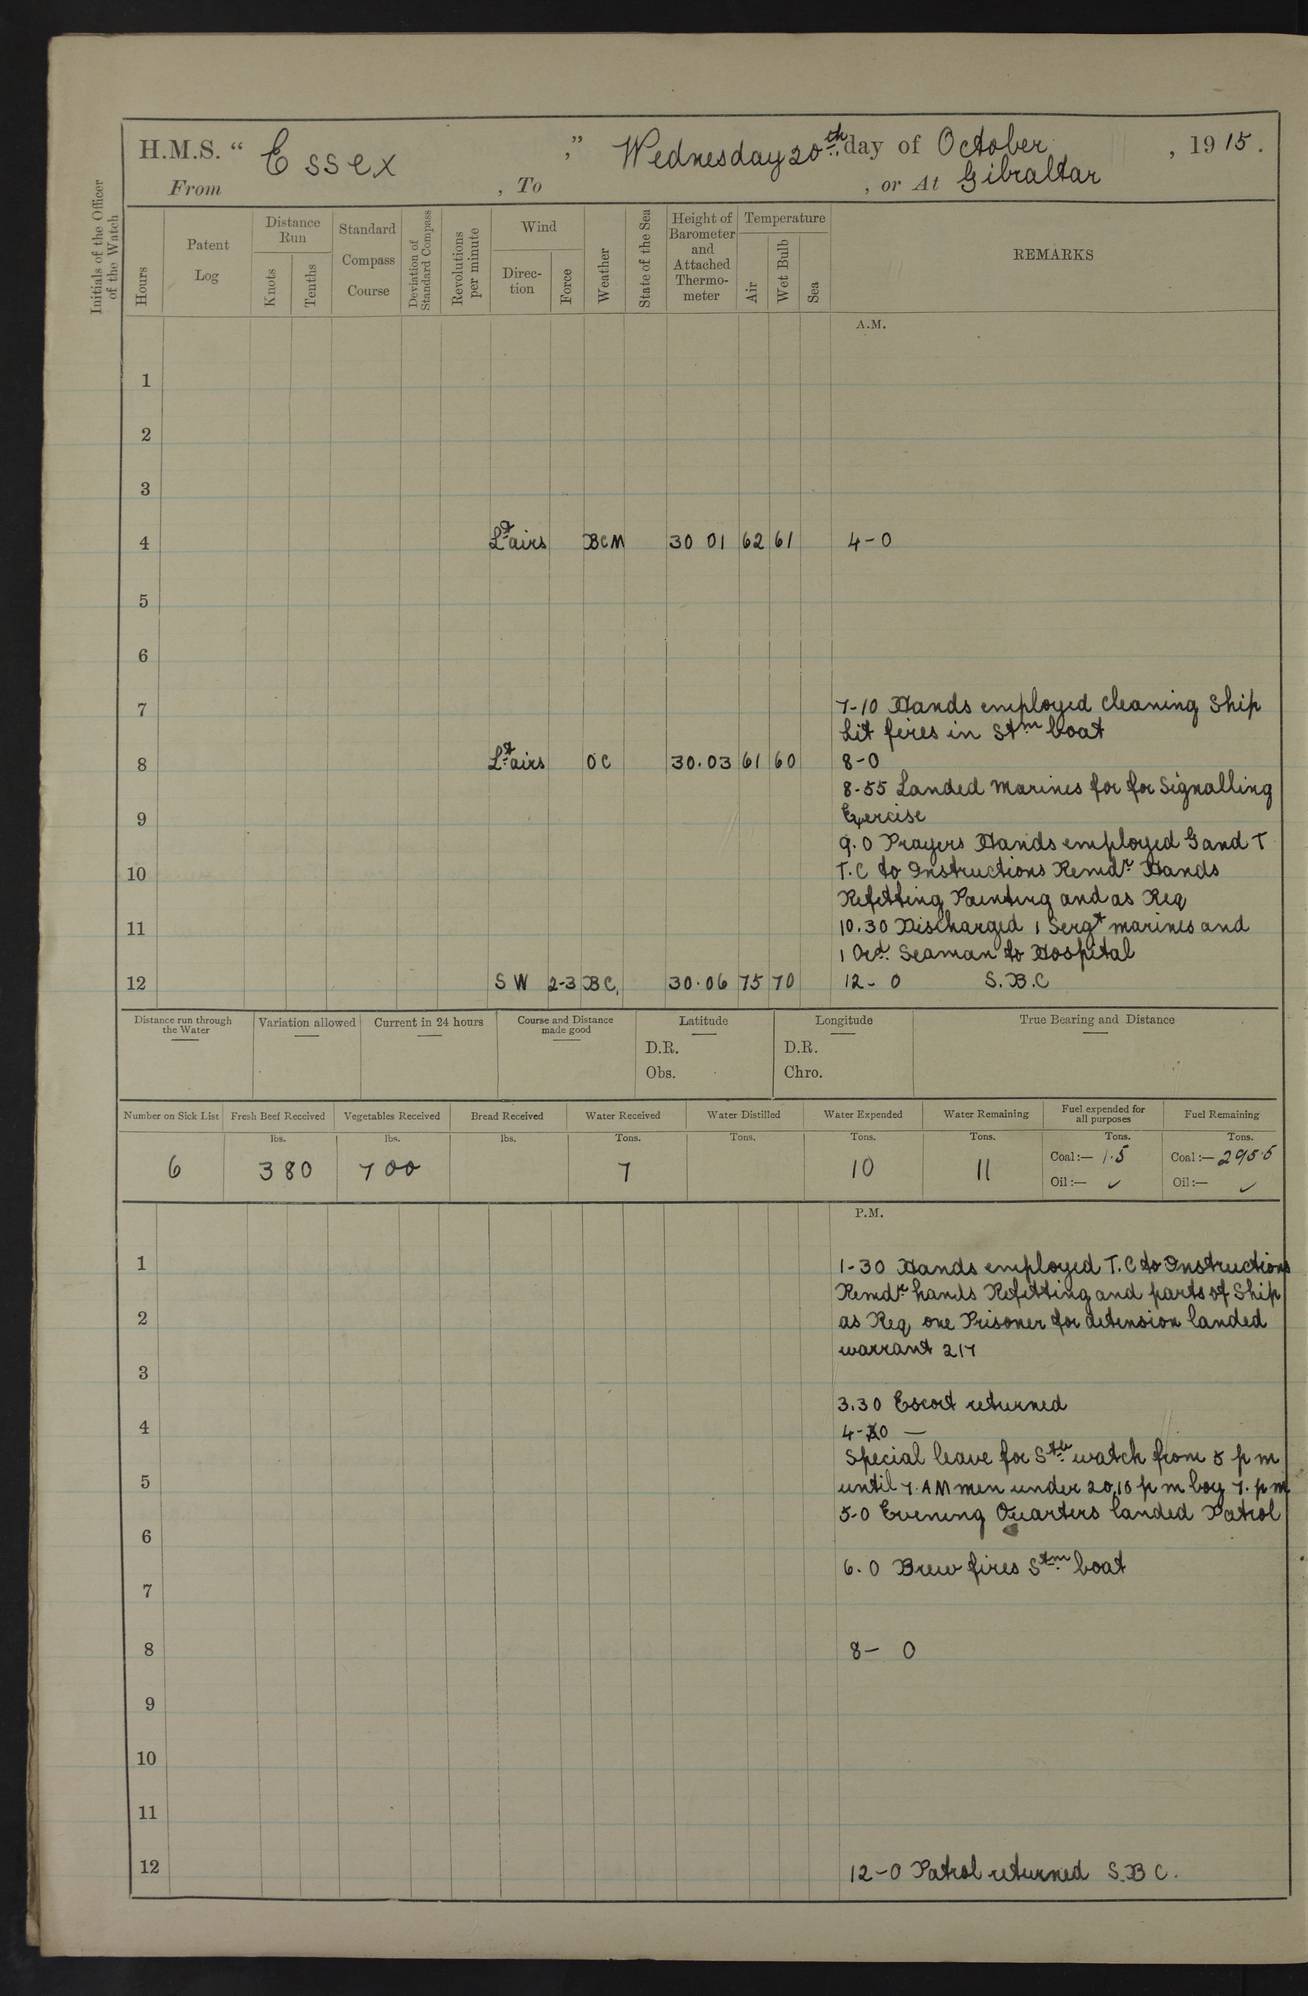 H.M.S. “ Essex ,” Wednesday 20th day of October , 1915.
From , To , or At Gibraltar
Initials of the Officer of the Watch
Hours
Patent Log
Distance Run
Knots
Tenths
Standard Compass Course
Deviation of Standard Compass
Revolutions per minute
Wind
Direc-tion
Force
Weather
State of the Sea
Height of Barometer and Attached Thermo-meter
Temperature
Air
Wet Bulb
Sea
REMARKS
A.M.
1
2
3
4 Lt airs BCM 30 01 62 61 4-0
5
6
7 7-10 Hands employed Cleaning Ship
Lit fires in Stm boat
8 Lt airs OC 30.03 61 60 8-0
8-55 Landed Marines for for Signalling
9 Exercise
9.0 Prayers Hands employed G and T
10 T.C to Instructions Remdr Hands
Refitting Painting and as Req
11 10.30 Discharged 1 Sergt marines and
1 Ord. Seaman to Hospital
12 SW 2-3 BC. 30.06 75 70 12- 0 S.B.C
Distance run through the Water
Variation allowed
Current in 24 hours
Course and Distance made good
Latitude
D.R.
Obs.
Longitude
D.R.
Chro.
True Bearing and Distance
Number on Sick List Fresh Beef Received Vegetables Received Bread Received Water Received Water Distilled Water Expended Water Remaining Fuel expended for all purposes Fuel Remaining
lbs. lbs. lbs. Tons. Tons. Tons. Tons. Tons. Tons.
6 380 700 7 10 11 Coal:— 1.5 Coal:— 295.5
Oil:— ✓ Oil:— ✓
P.M.
1 1-30 Hands employed T.C to Instructions
Remdr hands Refitting and parts of Ship
2 as Req one Prisoner for detension landed
warrant 217
3
3.30 Escort returned
4 4-0 —
Special leave for Stb watch from 5 pm
5 until 7.AM men under 20,10 pm boy 7.pm
5-0 Evening Quarters landed Patrol
6
6.0 Drew fires Stm boat
7
8 8- 0
9
10
11
12 12-0 Patrol returned S.B C.